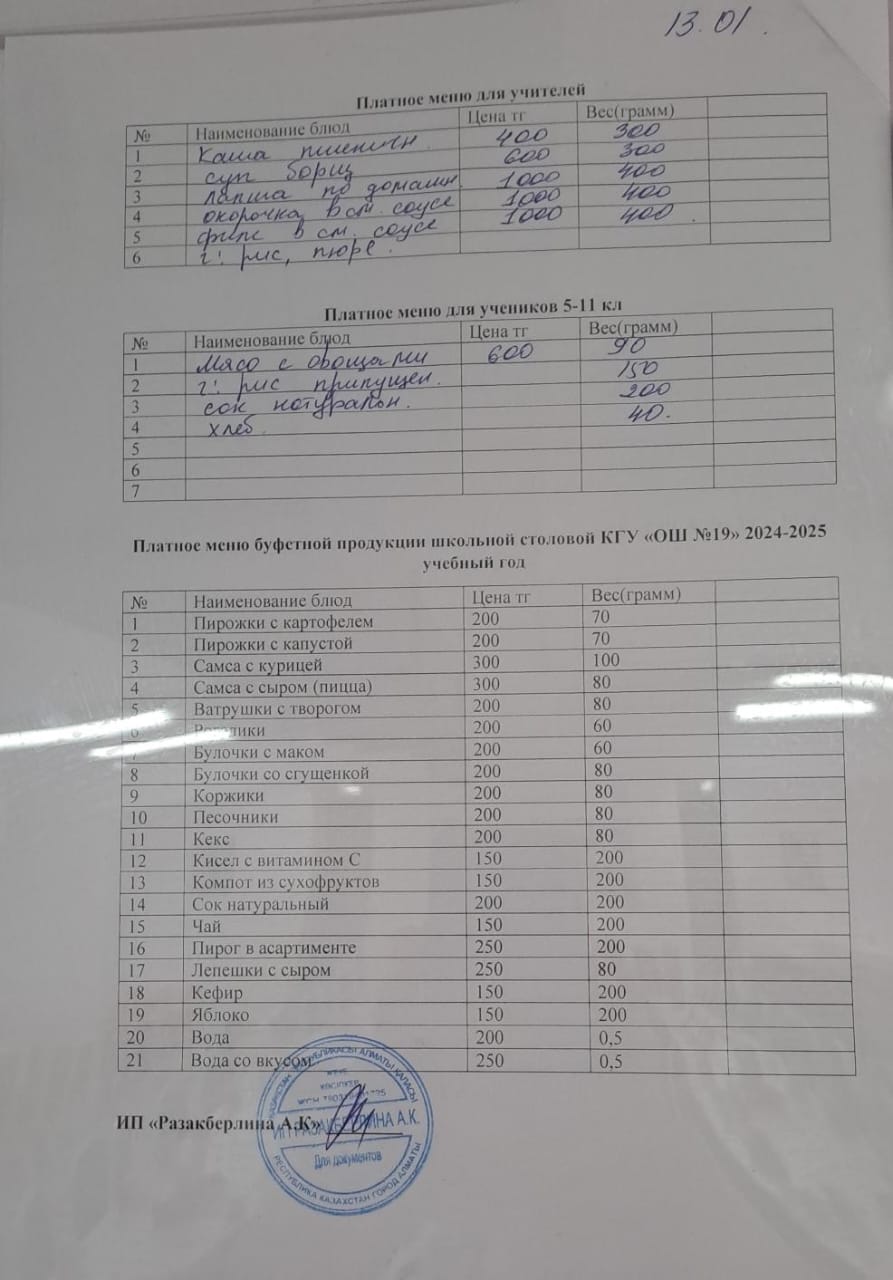 13.01.
Платное меню для учителей
№ Наименование блюд Цена тг Вес(грамм)
1 Каша пшеничн 400 300
2 суп борщ 600 300
3 лапша по домашн. 1000 400
4 окорочка в см. соусе 1000 400
5 филе в см. соусе 1000 400.
6 г: рис, пюре.
Платное меню для учеников 5-11 кл
№ Наименование блюд Цена тг Вес(грамм)
1 Мясо с овощами 600 90
2 г: рис припущен. 150
3 сок натуральн. 200
4 хлеб 40.
5
6
7
Платное меню буфетной продукции школьной столовой КГУ «ОШ №19» 2024-2025
учебный год
№ Наименование блюд Цена тг Вес(грамм)
1 Пирожки с картофелем 200 70
2 Пирожки с капустой 200 70
3 Самса с курицей 300 100
4 Самса с сыром (пицца) 300 80
5 Ватрушки с творогом 200 80
6 200 60
7 Булочки с маком 200 60
8 Булочки со сгущенкой 200 80
9 Коржики 200 80
10 Песочники 200 80
11 Кекс 200 80
12 Кисел с витамином С 150 200
13 Компот из сухофруктов 150 200
14 Сок натуральный 200 200
15 Чай 150 200
16 Пирог в асартименте 250 200
17 Лепешки с сыром 250 80
18 Кефир 150 200
19 Яблоко 150 200
20 Вода 200 0,5
21 Вода со вкусом 250 0,5
ИП «Разакберлина А.К»
ҚАЗАҚСТАН РЕСПУБЛИКАСЫ АЛМАТЫ ҚАЛАСЫ
ИП РАЗАКБЕРЛИНА А.К.
Для документов
РЕСПУБЛИКА КАЗАХСТАН ГОРОД АЛМАТЫ